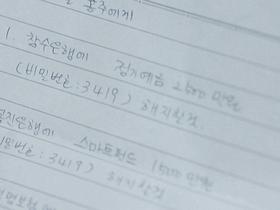 을 동주에게
1. 창수은행에 정기예금 2500만원
(비밀번호: 3419) 해지할것.
은행에 스마트펀드 1500만원
밀번호: 3419) 해지할것